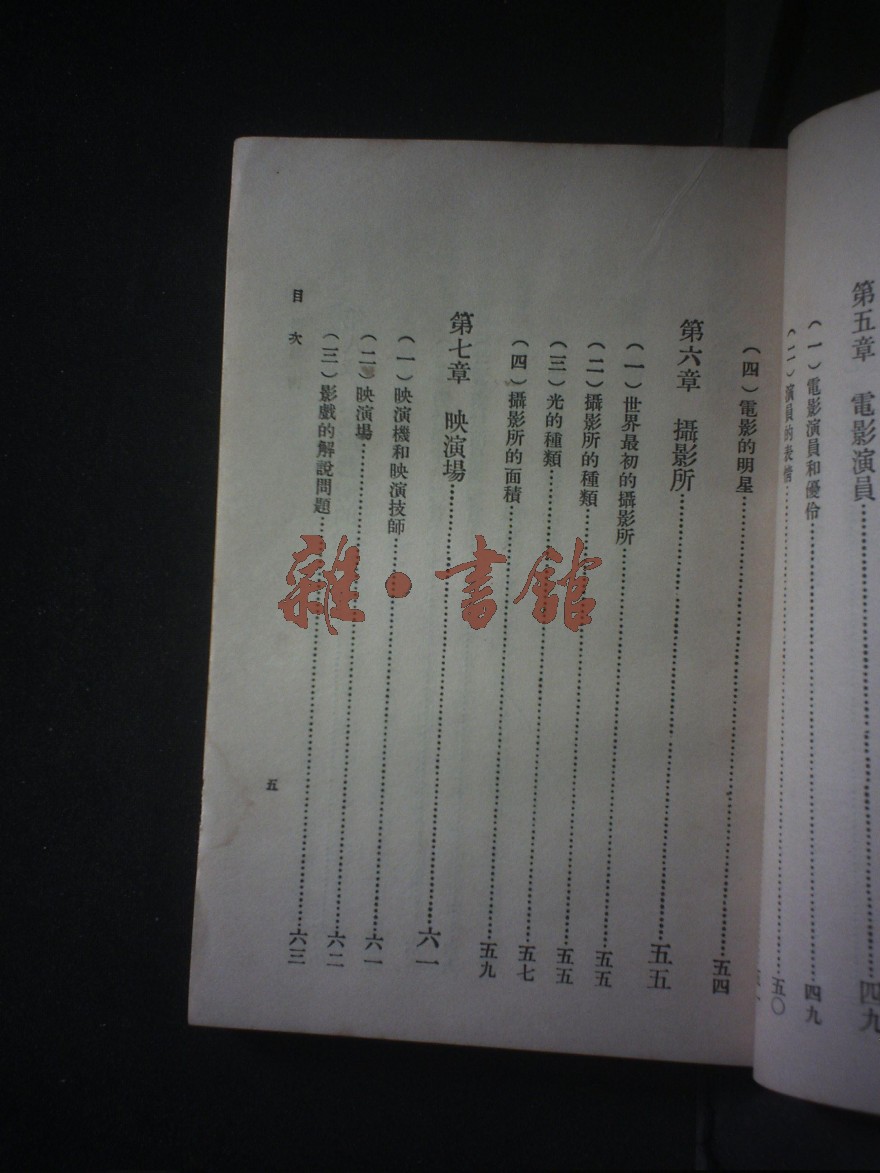 第五章 電影演員……四九
(一)電影演員和優伶……四九
(二)演員的表情……五〇
(四)電影的明星……五四
第六章 攝影所……五五
(一)世界最初的攝影所……五五
(二)攝影所的種類……五五
(三)光的種類……五七
(四)攝影所的面積……五九
第七章 映演場……六一
(一)映演機和映演技師……六一
(二)映演場……六二
(三)影戲的解說問題……六三
目次
五
雜·書館